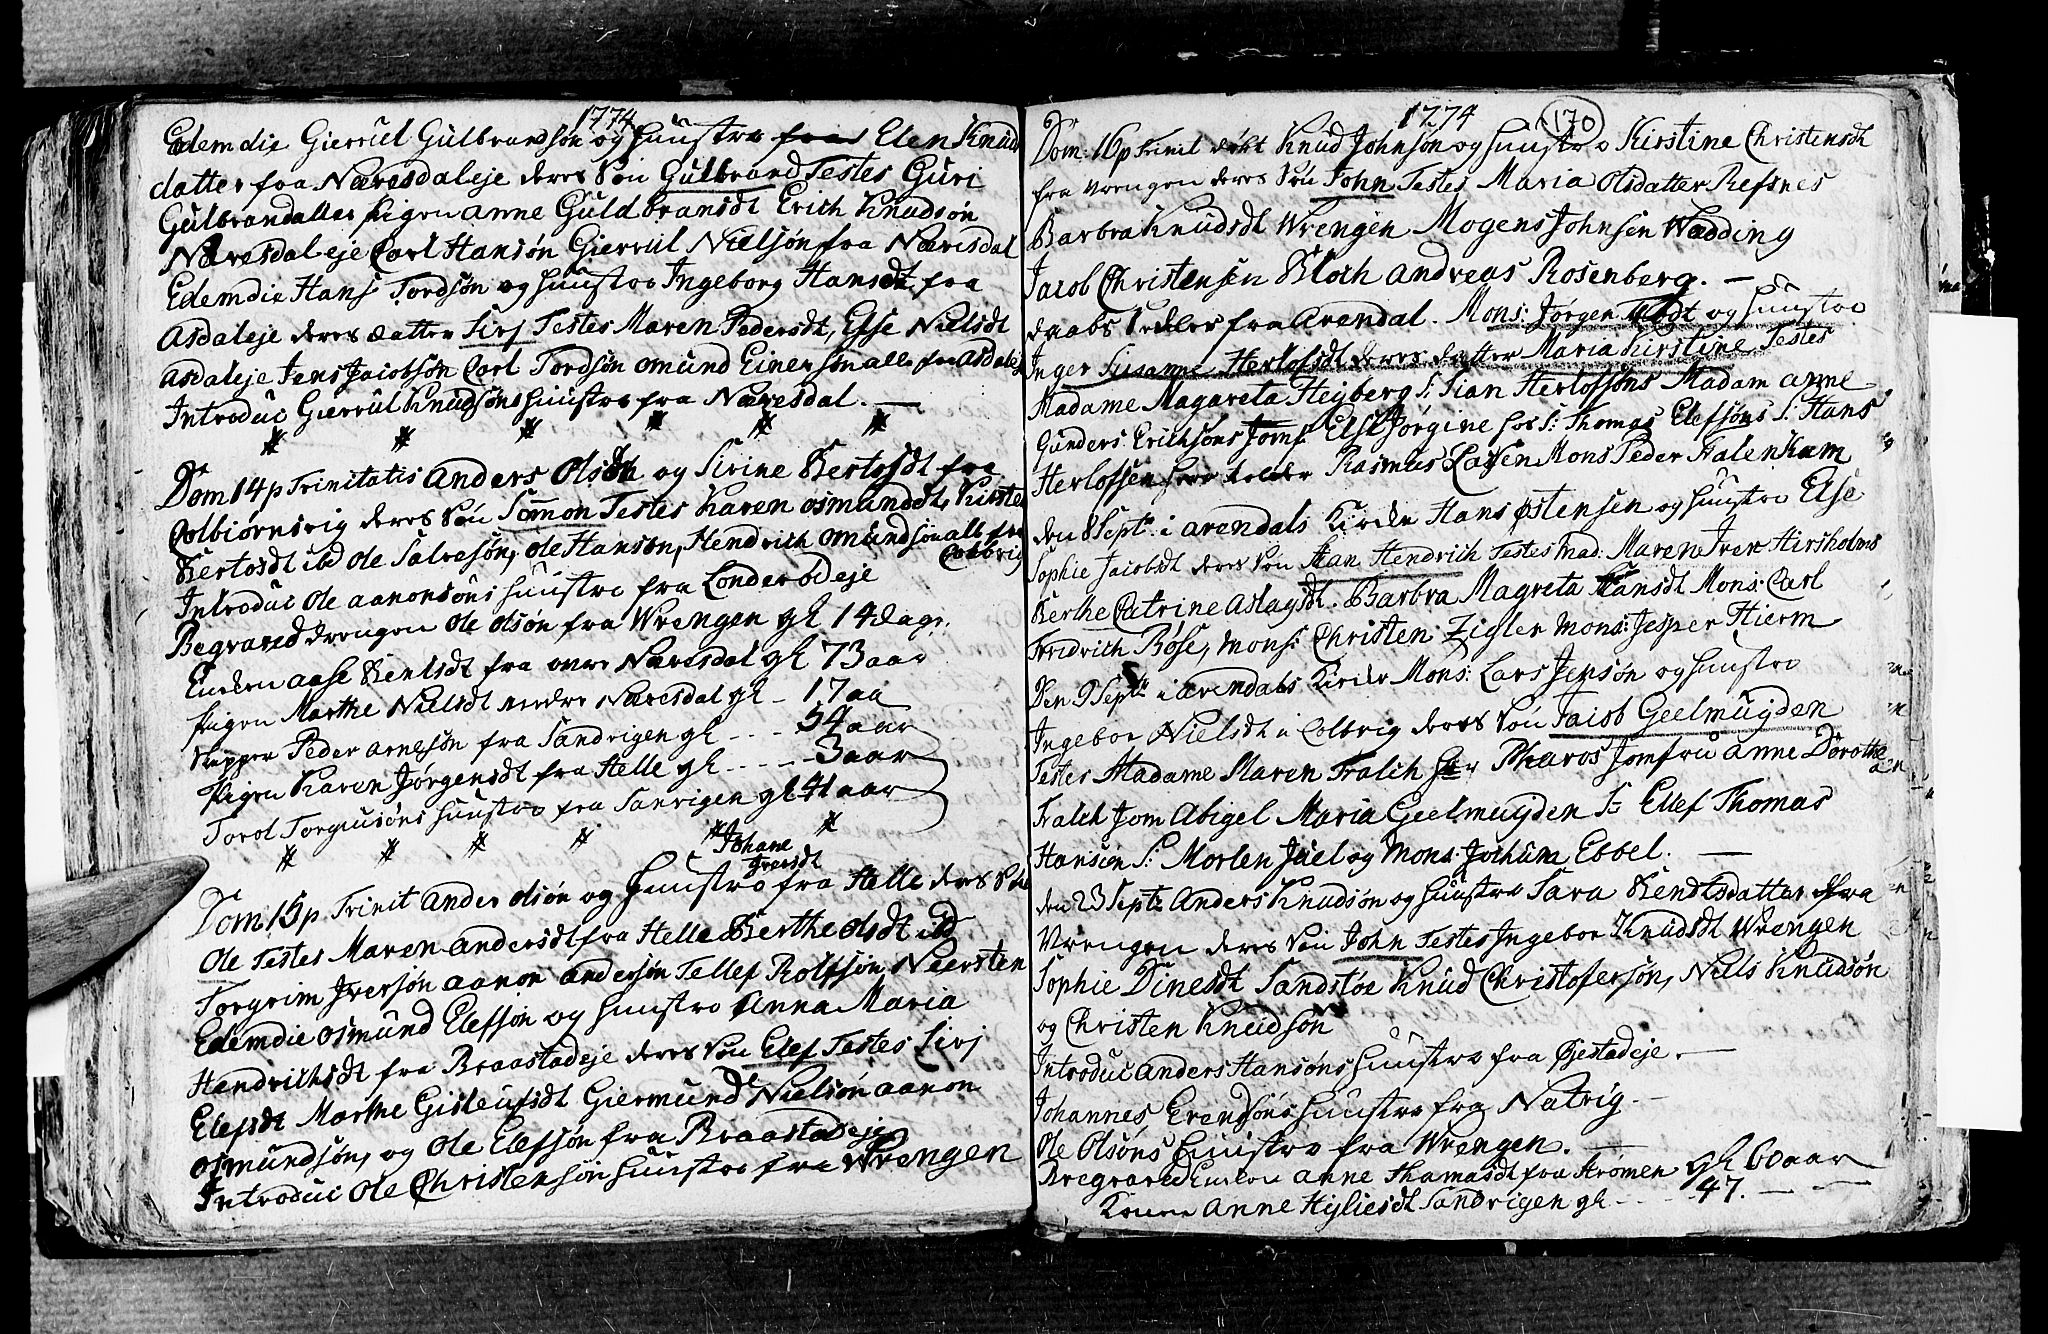 1774
Edem die Gierrul Gulbrandsøn og Huustro Elen Knuds
datter fra Næresdaleje deres Søn Gulbrand Testes Guri
Gulbrandatter Pigen Anne Guldbransdt Erich Knudsøn
Næresdaleje Carl Hansøn Gierrul Nielsøn fra Næresdal
Edem die Hans Tordsøn og Huustro Ingeborg Hansdt fra
Asdaleje deres datter Sirj Testes Maren Pedersdt, Else Nielsdt
Asdaleje Jens Jacobsøn Carl Tordsøn Omund Einersøn alle fra Asdalej
Introduc Gierrul Knudsøns Huustro fra Næresdal. —
Dom 14 p Trinitatis Anders Olsøn og Sirine Bertosdt fra
Colbiørnsvig deres Søn Simon Testes Karen Osmundsdt, Kirsten
Bertosdt ibd Ole Salvesøn, Ole Hansøn, Hendrich Omundsøn alle fra
Colbvig
Introduc Ole Aanonsøns Huustro fra Londerødeje
Begraved drengen Ole Olsøn fra Wrengen gl 14 dage.
Enken Aase Bentsdt fra øvre Næresdal gl 73 aar
Pigen Marthe Nielsdt nedre Næresdal gl - 17 aa
Skipper Peder Arnesøn fra Sandvigen gl - - - 54 aar
Pigen Karen Jørgensdt fra Helle gl - - - - - 3 aar
Torol Torgiusøns Huustro fra Sanvigen gl 41 aar
Johane
Iversdt
Dom 15 p Trinit Ander Olsøn og Huustro fra Helle deres Søn
Ole Testes Maren Andersdt fra Helle Berthe Olsdt ibd
Torgrim Iversøn Aanon Andersøn Tellef Rolfsøn Neersten
Edem die Osmund Elefsøn og Huustro Anna Maria
Hendrichsdt fra Braastadeje deres Søn Elef Testes Sirj
Elefsdt Marthe Gisleufsdt Giermund Nielsøn Aanon
Osmundsøn, og Ole Elefsøn fra Braastadeje
Introduc Ole Christensøn Huustro fra Wrengen
1774
170
Dom: 16 p Trinit døbt Knud Johnsøn og Huustro Kirstine Christensdt
fra Vrengen deres Søn John Testes Maria Olsdatter Refsnes
Barbra Knudsdt Wrengen Mogens Johnsen Wedding
Jacob Christensen Bloch Andreas Rosenberg. —
daabs Sedler fra Arendal. Mons: Jørgen og Huustro
Inger Susanne Herlofsdt deres datter Maria Kirstine Testes
Madame Magareta Heyberg S: Sian Herlofsøns Madam Anne
Gunders Erichsøns Jomf Else Jørgine hos S: Thomas Elefsøns S: Hans
Herlofsen Rasmus Larsen Mons Peder Falenkam
den 8 Septr i Arendals Kircke Hans Østensen og Huustro Else
Sophie Jacobsdt deres Søn Jan Hendrich Testes Mad: Maren Iver Hirsholms
Berthe Catrine Aslagsdt. Barbra Magreta Hansdt Mons: Carl
Fredrich Bose, Mons: Christen Zigler Mons: Jesper Hierm
Den 9 Septr i Arendals Kircke Mons: Lars Jensøn og Huustro
Ingebor Nielsdt i Colbvig deres Søn Jacob Geelmuyden
Testes Madame Maren Falch Pharos Jomfru Anne Dorothe
Falch Jom Abigel Maria Geelmuyden Sr Ellef Thomas
Hansen S: Morten Juel og Mons: Jochum Ebbel. —
den 23 Septr Anders Knudsøn og Huustro Sara Bendtsdatter fra
Vrengen deres Søn John Testes Ingebor Knudsdt Wrengen
Sophie Dinesdt Sandstøe Knud Christofersøn, Niels Knudsøn
og Christen Knudsøn
Introduc Anders Hansøns Huustro fra Øjestadeje. —
Johannes Erendsøns Huustro fra Natvig. —
Ole Olsøns Huustro fra Wrengen. —
Begraved Enken Anne Thomasdt fra Strømen gl 60 aar
Konen Anne Hyliesdt Sandvigen gl - - - 47. —